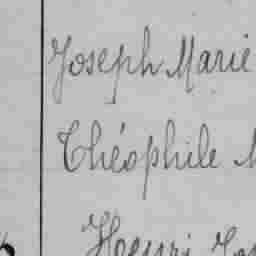 Joseph Marie
Théophile
Henri